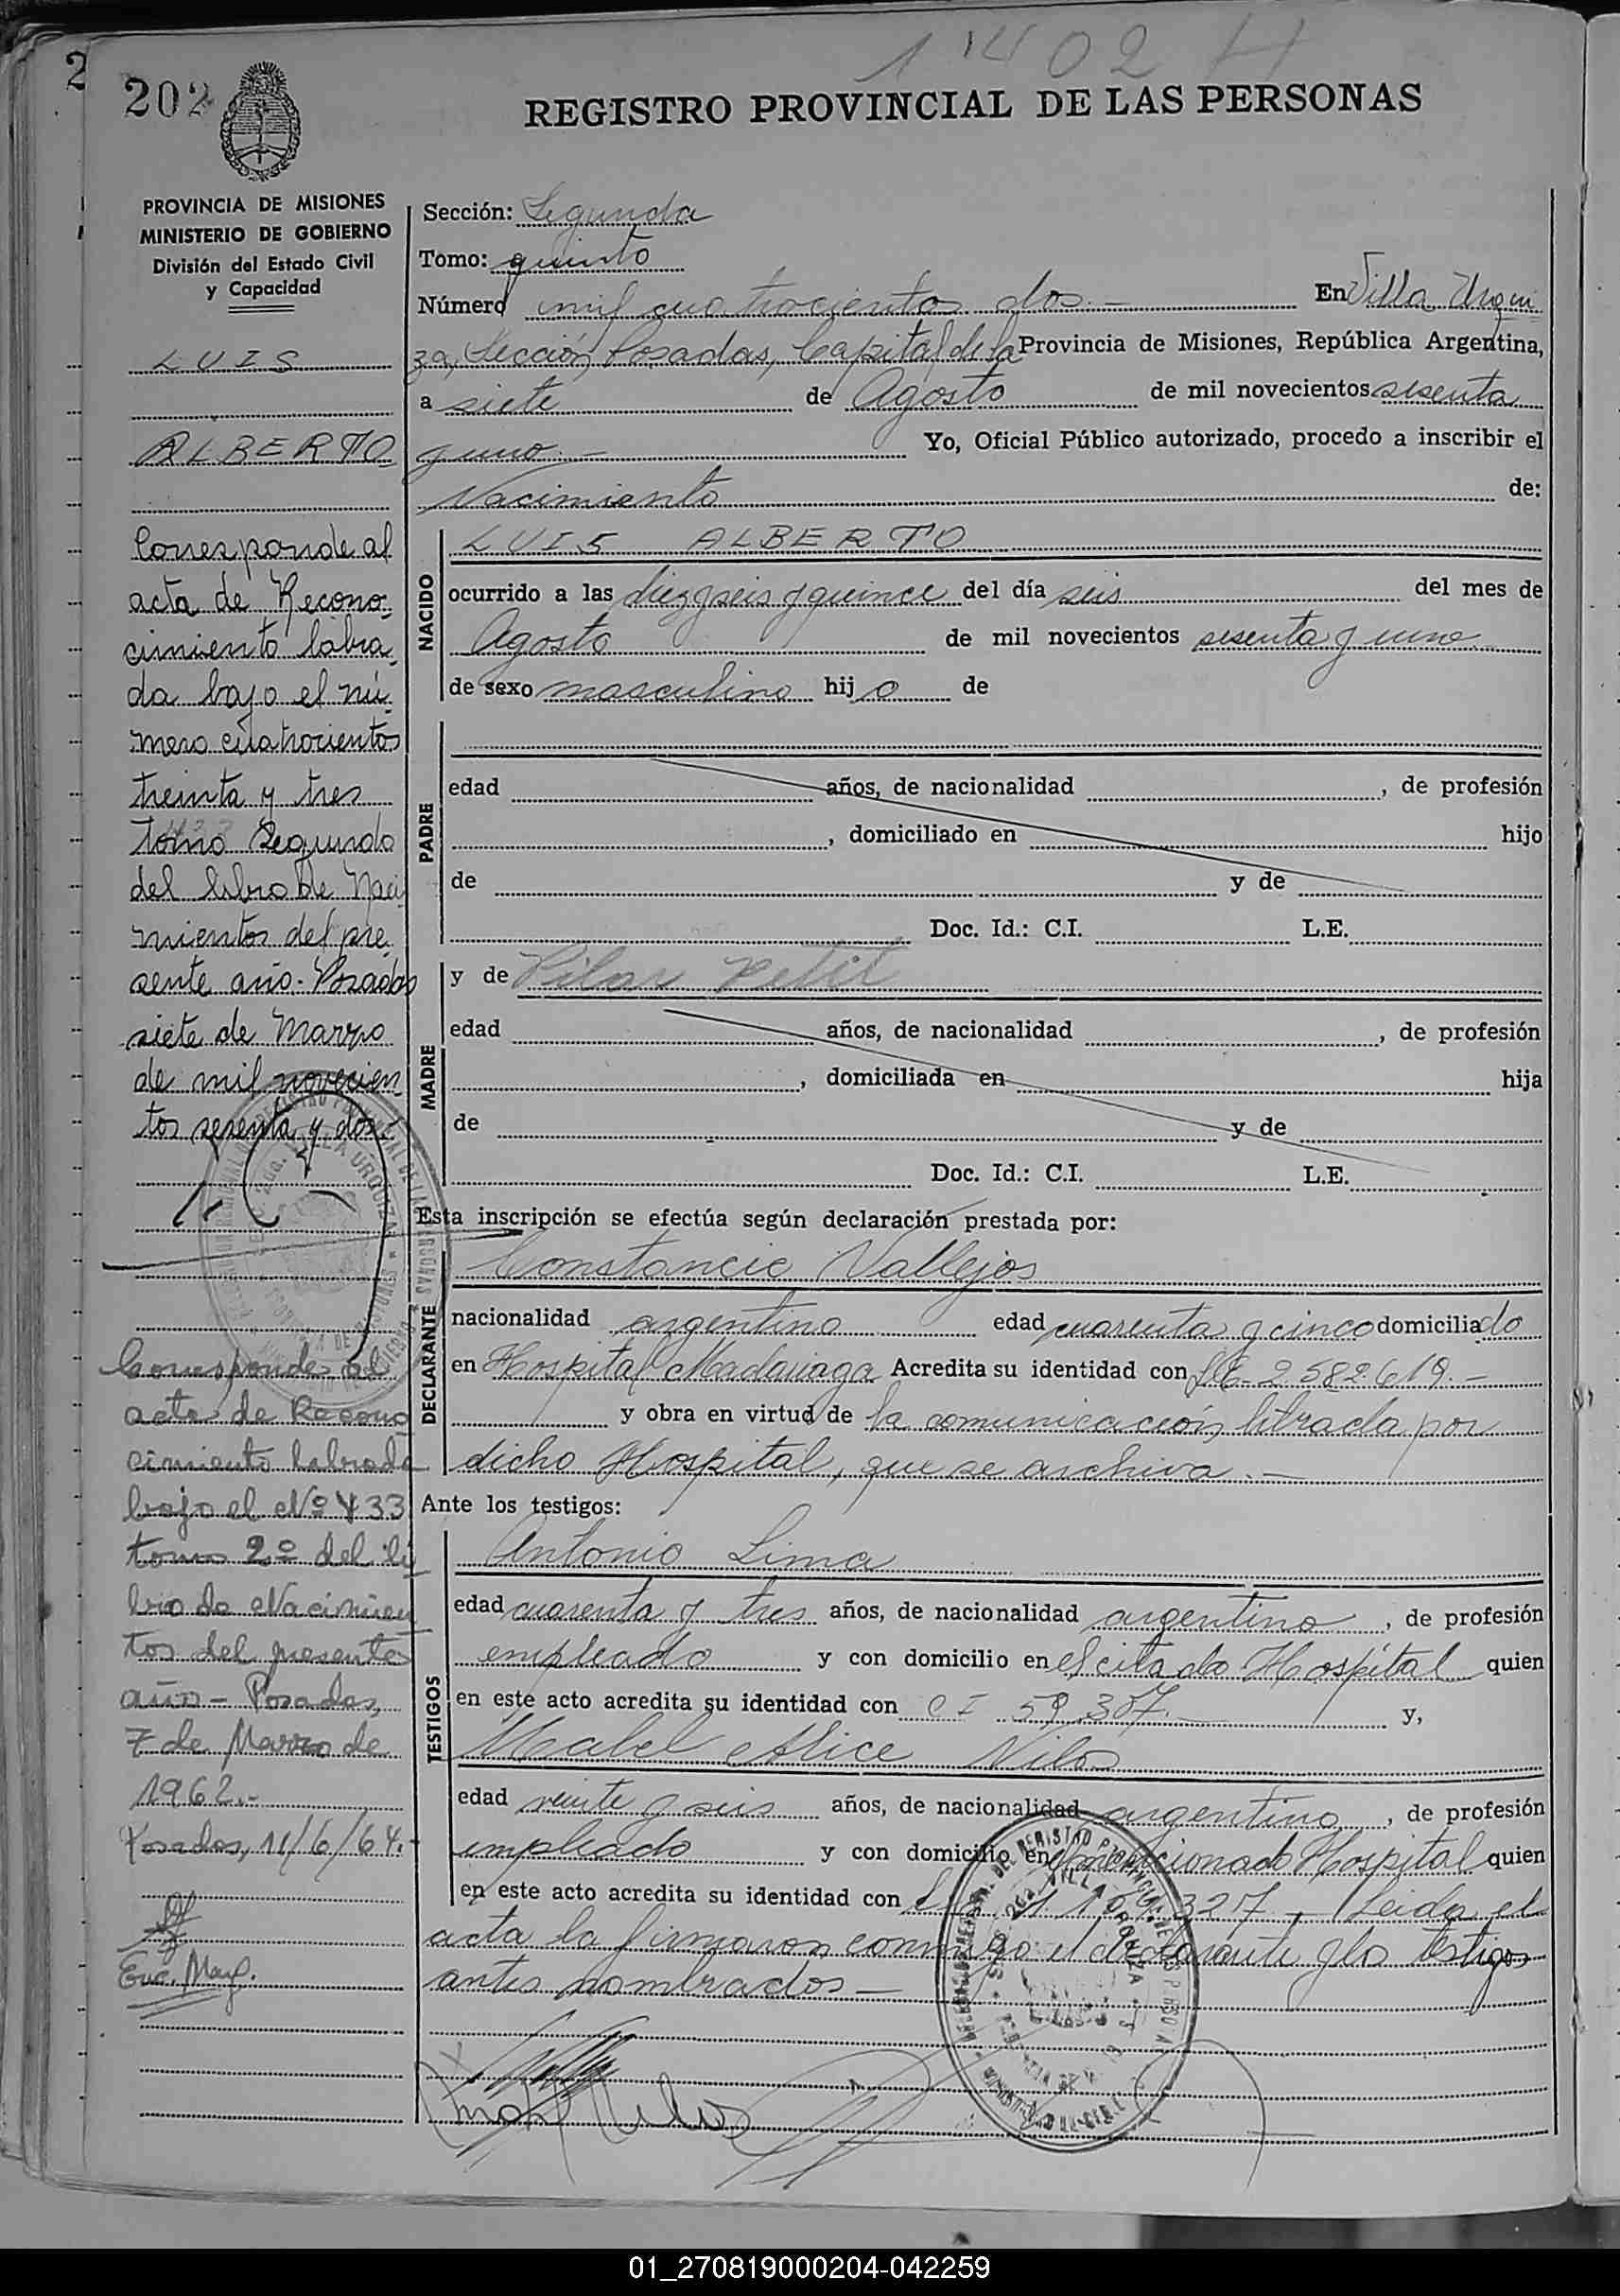 1402 H
2
202
REGISTRO PROVINCIAL DE LAS PERSONAS
PROVINCIA DE MISIONES
MINISTERIO DE GOBIERNO
División del Estado Civil
y Capacidad
LUIS
ALBERTO
Corresponde al
acta de Recono-
cimiento labra-
da bajo el nú-
mero cuatrocientos
treinta y tres
tomo Segundo
del libro de Naci
mientos del pre-
sente año. Posadas
siete de Marzo
de mil novecien
tos sesenta y dos
Corresponde al
acta de Recono
cimiento labrada
bajo el Nº 433
tomo 2º del li
bro de Nacimien
tos del presente
año - Posadas,
7 de Marzo de
1962.-
Posadas, 11/6/64.-
Enc. May.
Sección: Segunda
Tomo: quinto
Número mil cuatrocientos dos.- En Villa Urqui
za, Sección Posadas, Capital de la Provincia de Misiones, República Argentina,
a siete de Agosto de mil novecientos sesenta
y uno.- Yo, Oficial Público autorizado, procedo a inscribir el
Nacimiento de:
NACIDO
LUIS ALBERTO
ocurrido a las diez y seis y quince del día seis del mes de
Agosto de mil novecientos sesenta y uno
de sexo masculino hijo de
PADRE
edad años, de nacionalidad , de profesión
, domiciliado en hijo
de y de
Doc. Id.: C.I. L.E.
MADRE
y de Pilar Petit
edad años, de nacionalidad , de profesión
, domiciliada en hija
de y de
Doc. Id.: C.I. L.E.
Esta inscripción se efectúa según declaración prestada por:
DECLARANTE
Constancio Vallejos
nacionalidad argentino edad cuarenta y cinco domiciliado
en Hospital Madariaga Acredita su identidad con 2.582.619.-
y obra en virtud de la comunicación librada por
dicho Hospital, que se archiva.-
Ante los testigos:
TESTIGOS
Antonio Lima
edad cuarenta y tres años, de nacionalidad argentino, de profesión
empleado y con domicilio en el citado Hospital quien
en este acto acredita su identidad con C I 59.307.- y,
Mabel Alice Nilo
edad veinte y seis años, de nacionalidad argentina, de profesión
empleado y con domicilio en mencionado Hospital quien
en este acto acredita su identidad con 327, Leida el
acta la firmaron conmigo el declarante y los testigos
antes nombrados -
VILLA URQUIZA
01_270819000204-042259